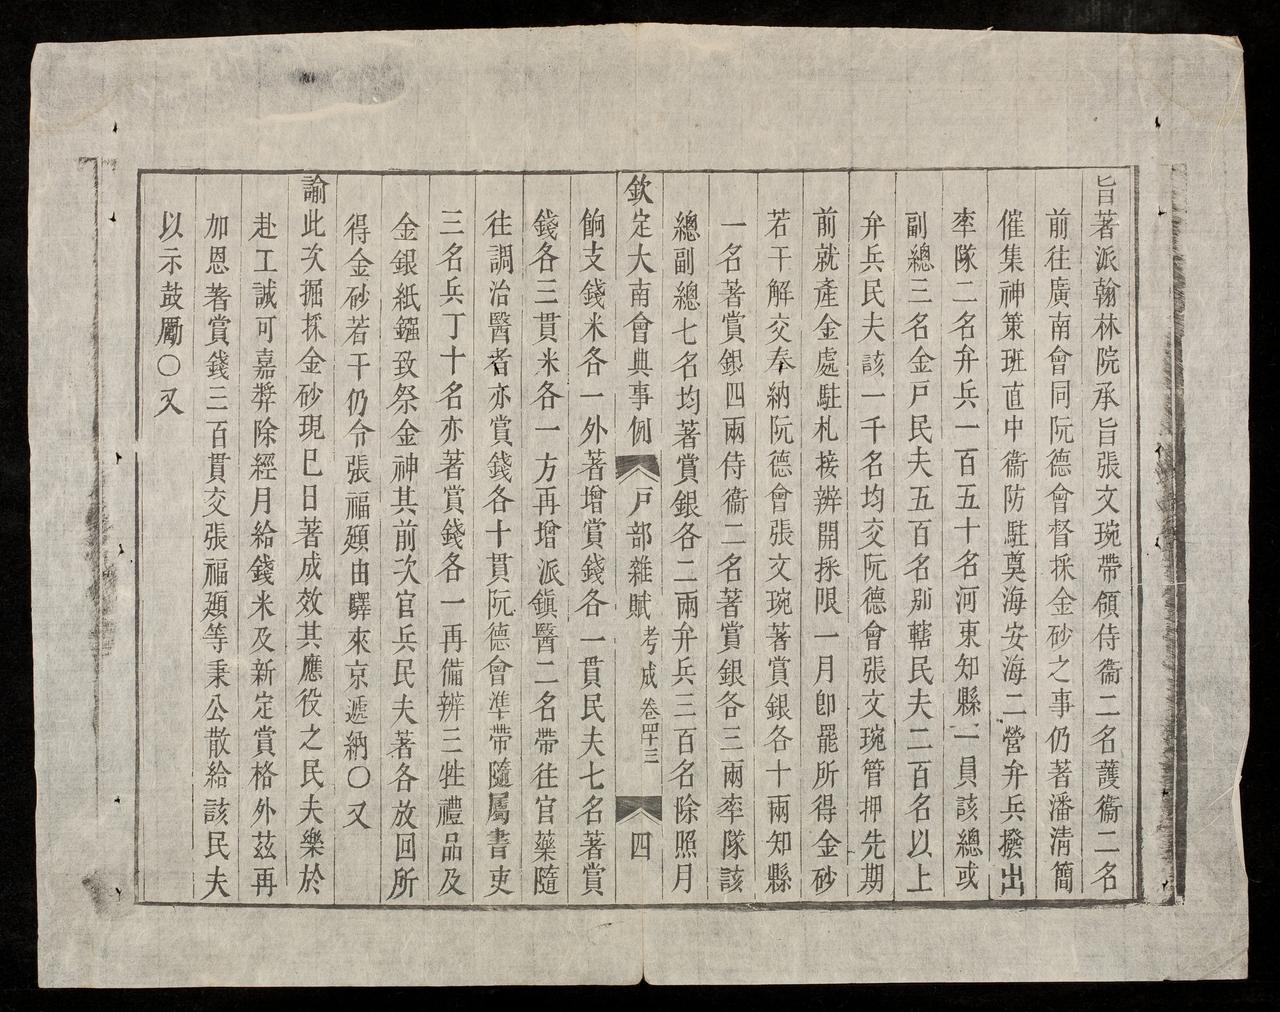 旨著派翰林院承旨張文琬帶領侍衞二名護衞二名
前往廣南會同阮德會督採金砂之事仍著潘清簡
催集神策班直中衞防駐奠海安海二營弁兵撥出
率隊二名弁兵一百五十名河東知縣一員該總或
副總三名金戸民夫五百名別轄民夫二百名以上
弁兵民夫該一千名均交阮德會張文琬管押先期
前就產金處駐札接辨開採限一月卽罷所得金砂
若干解交奉納阮德會張文琬著賞銀各十兩知縣
一名著賞銀四兩侍衞二名著賞銀各三兩率隊該
總副總七名均著賞銀各二兩弁兵三百名除照月
欽定大南會典事例 戸部雜賦 考成 卷四十三 四
餉支錢米各一外著增賞錢各一貫民夫七名著賞
錢各三貫米各一方再增派鎮醫二名帶往官藥隨
往調治醫者亦賞錢各十貫阮德會準帶隨屬書吏
三名兵丁十名亦著賞錢各一再備辨三牲禮品及
金銀紙鏹致祭金神其前次官兵民夫著各放回所
得金砂若干仍令張福頲由驛來京遞納〇又
諭此次掘採金砂現巳日著成效其應役之民夫樂於
赴工誠可嘉奬除經月給錢米及新定賞格外茲再
加恩著賞錢三百貫交張福頲等秉公散給該民夫
以示鼓勵〇又